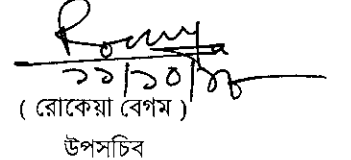 ১১/১০/১৮
( রোকেয়া বেগম )
উপসচিব